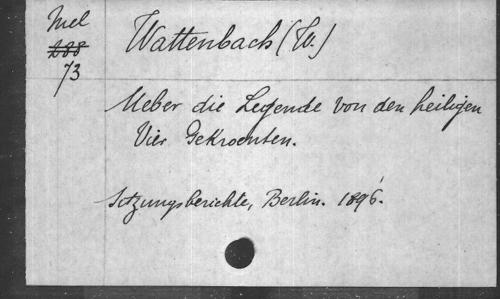 Mel
288
73
Wattenbach (W.)
Ueber die Legende von den heiligen
Vier Gekroenten.
Sitzungsberichte, Berlin. 1896.